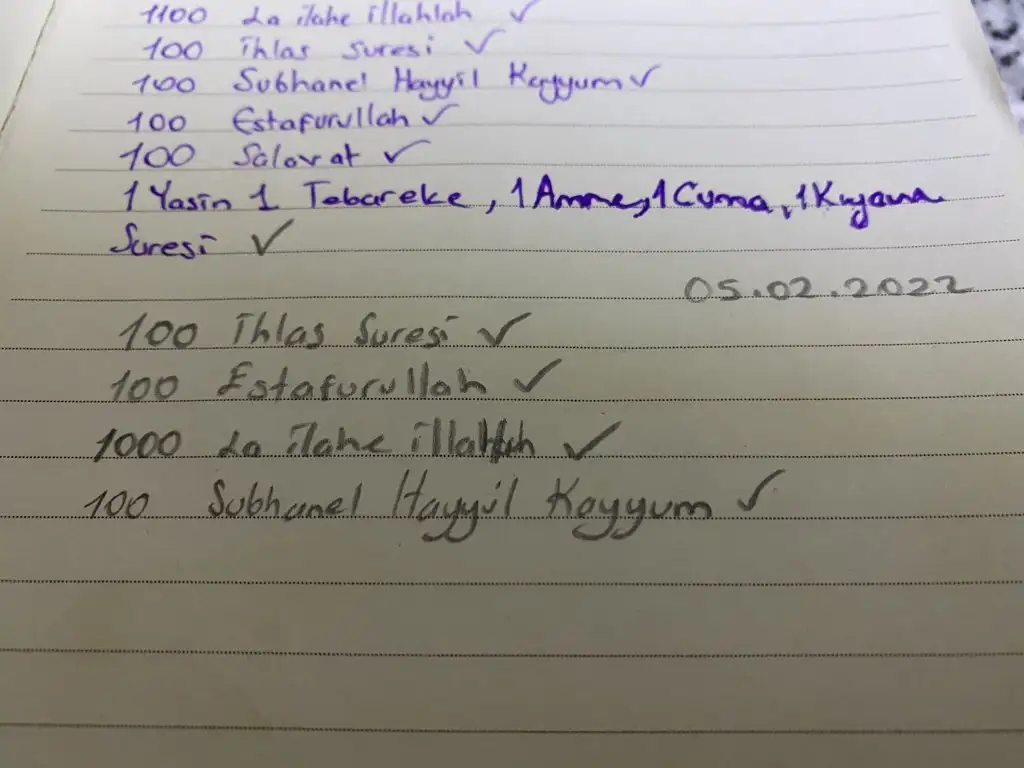 1100 La ilahe illahlah ✓
100 ihlas Suresi ✓
100 Subhanel Hayyil Kayyum ✓
100 Estafurullah ✓
100 Salavat ✓
1 Yasin 1 Tebareke, 1 Amme, 1 Cuma, 1 Kıyame
Suresi ✓
05.02.2022
100 ihlas Suresi ✓
100 Estafurullah ✓
1000 La ilahe illahlah ✓
100 Subhanel Hayyil Kayyum ✓